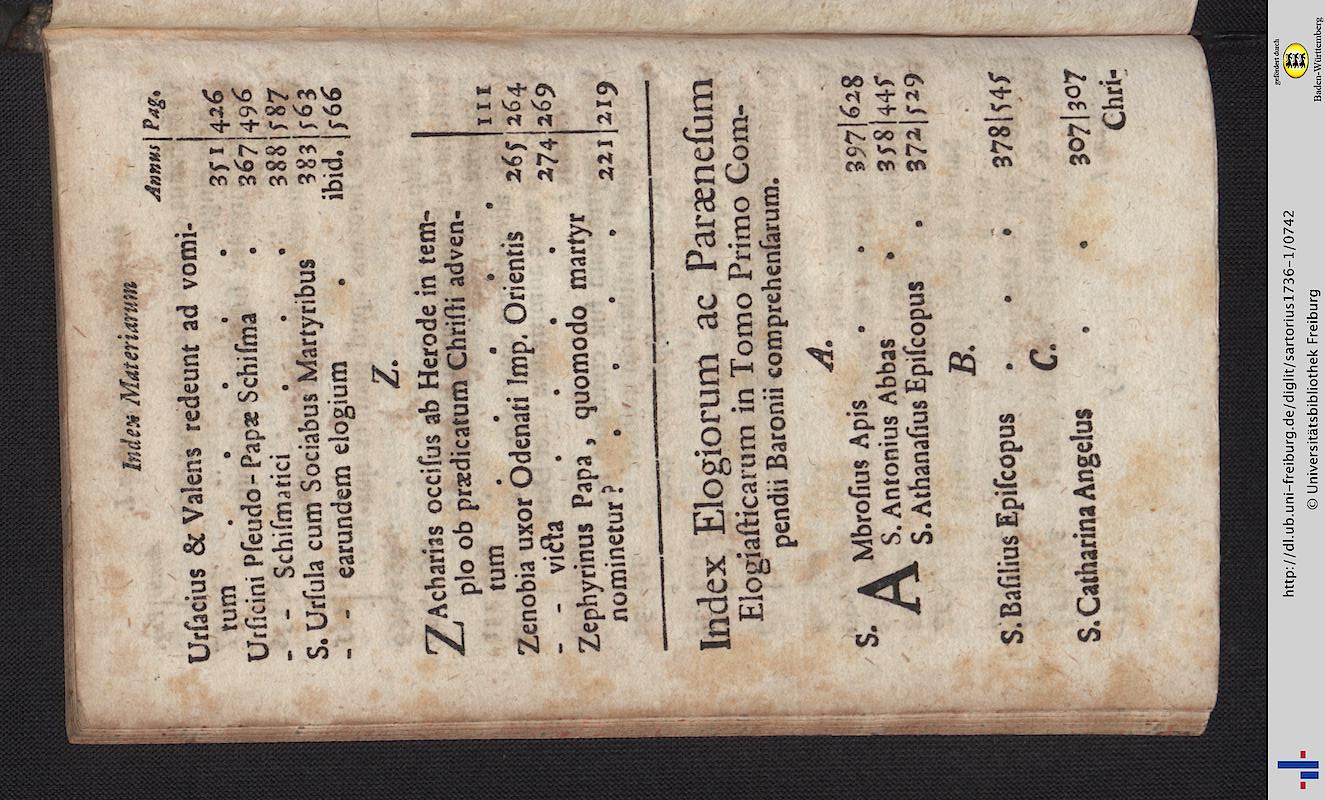 Index Materiarum
Annus | Pag.
Urſacius & Valens redeunt ad vomi-
rum . . . . 351 | 426
Urſicini Pſeudo-Papæ Schiſma . 367 | 496
- - Schiſmatici . . . 388 | 587
S. Urſula cum Sociabus Martyribus 383 | 563
- - earundem elogium . ibid. | 566
Z.
ZAcharias occiſus ab Herode in tem-
plo ob prædicatum Chriſti adven-
tum . . . . . 111
Zenobia uxor Odenati Imp. Orientis 265 | 264
- - victa . . . . 274 | 269
Zephyrinus Papa, quomodo martyr
nominetur? . . . . 221 | 219
Index Elogiorum ac Parænefum
Elogiaſticarum in Tomo Primo Com-
pendii Baronii comprehenſarum.
A.
S. AMbroſius Apis . . 397 | 628
S. Antonius Abbas . 358 | 445
S. Athanaſius Epiſcopus . 372 | 529
B.
S. Baſilius Epiſcopus . . . 378 | 545
C.
S. Catharina Angelus . . 307 | 307
Chri-
http://dl.ub.uni-freiburg.de/diglit/sartorius1736-1/0742
© Universitätsbibliothek Freiburg
gefördert durch
Baden-Württemberg